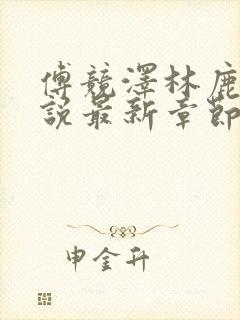 傅競澤林鹿
說最新章節
申金升